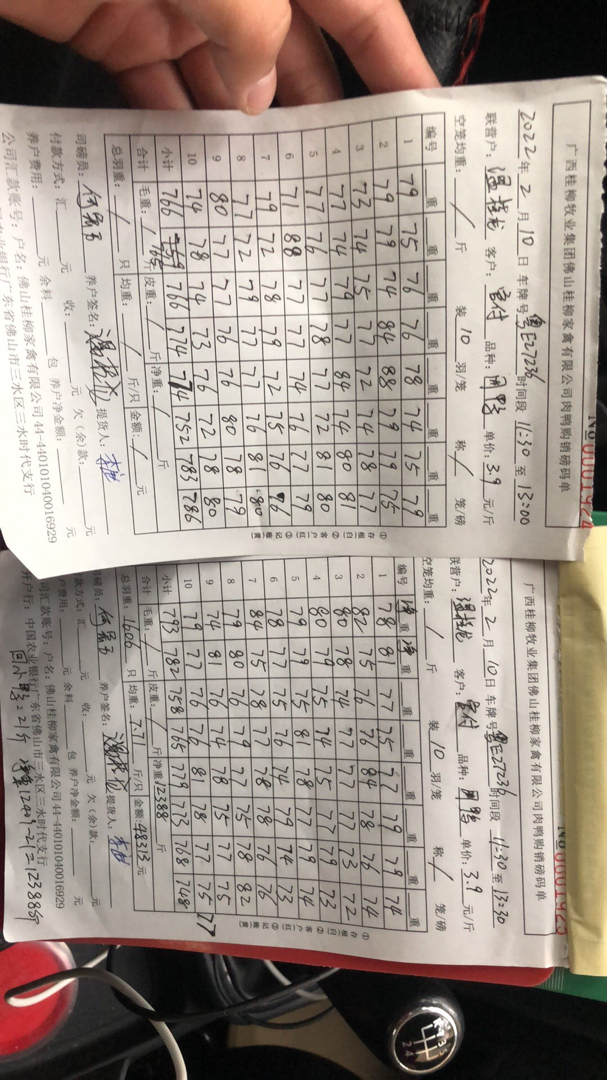 No 0001924
广西桂柳牧业集团佛山桂柳家禽有限公司肉鸭购销磅码单
2022年 2 月 10 日 车牌号 粤E27236 时间段 11:30 至 13:00
联营户: 客户: 品种: 单价: 3.9 元/斤
空笼均重: / 斤 装 10 羽/笼 称 / 笼/磅
编号 重 重 重 重 重 重 重 重
1 79 75 76 76 78 74 75 79
2 79 79 74 84 88 79 79 75
3 73 74 75 77 72 74 78 77
4 77 74 79 77 84 74 80 81
5 77 76 77 78 77 72 81 80
6 71 88 77 77 74 76 77 79
7 79 72 78 79 72 75 76 76
8 77 72 79 77 77 76 81 80
9 80 77 77 76 76 80 78 79
10 74 78 74 73 76 72 78 80
小计 766 759 766 774 774 752 783 786
765
合计 毛重: / 斤 皮重: / 斤 净重: / 斤
总羽重: / 只 均重: / 斤/只 金额: / 元
司磅员: 养户签名: 提货人:
付款方式: 汇 元 收: 元 欠(余)款: 元
养户费用: 元 余料 包 养户净金额: 元
公司汇款账号: 户名: 佛山桂柳家禽有限公司 44-440101040016929
农业银行广东省佛山市三水区三水时代支行
①存根(白) ②客户(红) ③记账(黄)
No 0001923
广西桂柳牧业集团佛山桂柳家禽有限公司肉鸭购销磅码单
2022年 2 月 10 日 车牌号 粤E27236 时间段 11:30 至 13:30
联营户: 客户: 品种: 单价: 3.9 元/斤
空笼均重: / 斤 装 10 羽/笼 称 / 笼/磅
编号 净重 净重 重 重 重 重 重 重
1 78 81 77 75 77 79 79 74
2 82 75 76 76 84 78 76 74
3 80 78 74 77 77 77 73 72
4 80 79 75 74 75 77 79 73
5 79 79 75 81 78 77 79 74
6 78 77 79 76 74 79 74 73
7 84 75 78 77 78 78 76 76
8 79 80 76 79 77 75 78 82
9 74 81 76 74 78 75 77 75
10 79 77 76 76 81 78 77 75 77
小计 793 782 758 765 779 773 768 748
合计 毛重: 斤 皮重: 斤 净重: 12388 斤
总羽重: 1606 只 均重: 7.71 斤/只 金额: 48313 元
养户签名: 提货人:
款方式: 汇 元 收: 元 欠(余)款: 元
户费用: 元 余料 包 养户净金额: 元
司汇款账号: 户名: 佛山桂柳家禽有限公司 44-440101040016929
开户行: 中国农业银行广东省佛山市三水区三水时代支行
=21斤 -21=12388斤
①存根(白) ②客户(红) ③记账(黄)
1 3 5
2 4